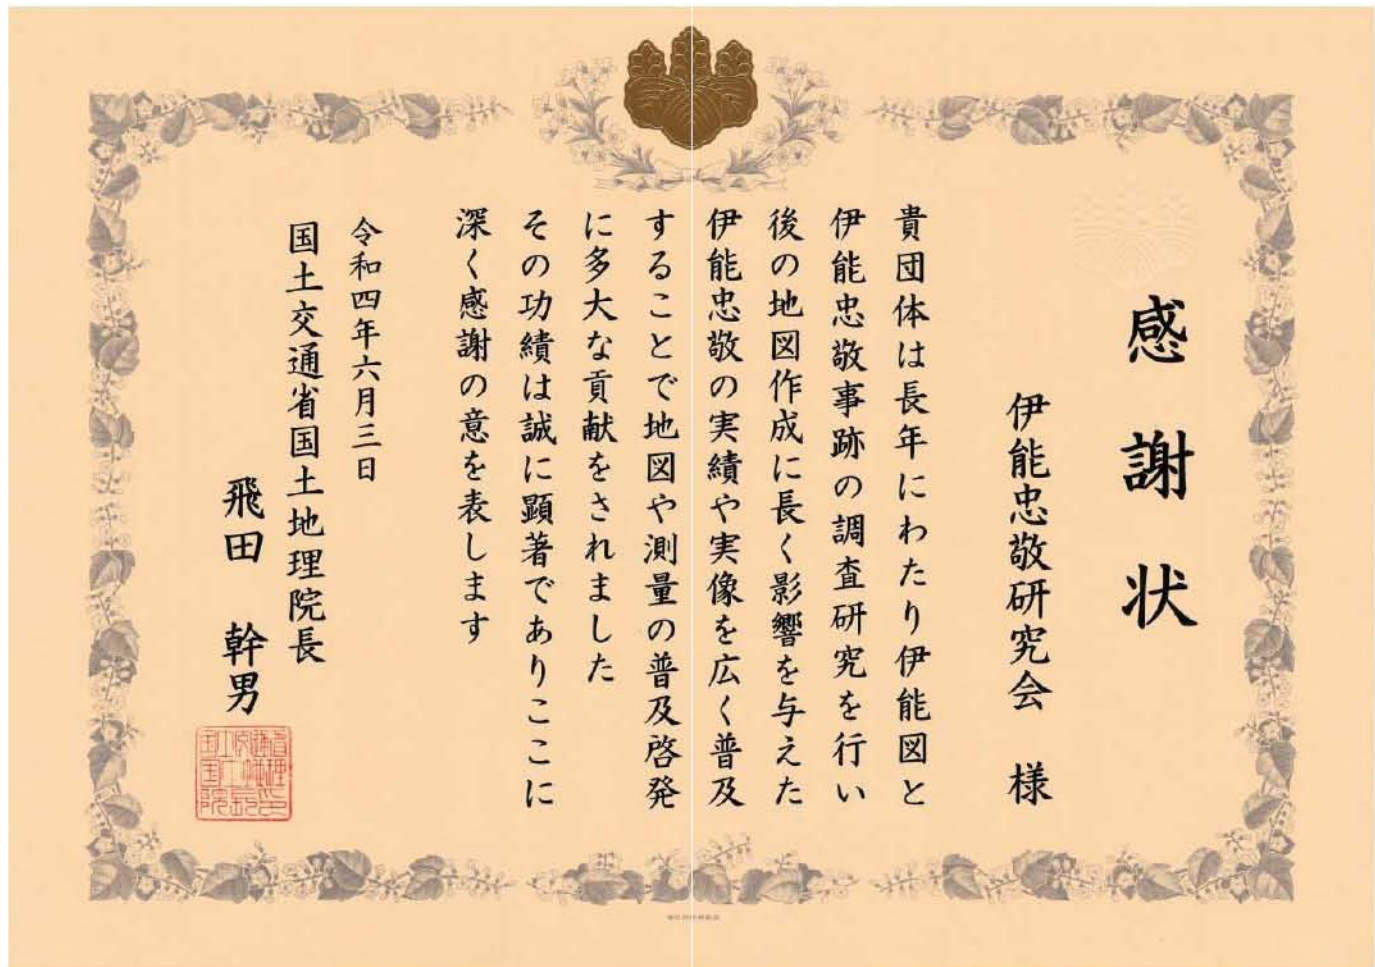 感謝状
伊能忠敬研究会 様
貴団体は長年にわたり伊能図と
伊能忠敬事跡の調査研究を行い
後の地図作成に長く影響を与えた
伊能忠敬の実績や実像を広く普及
することで地図や測量の普及啓発
に多大な貢献をされました
その功績は誠に顕著でありここに
深く感謝の意を表します
令和四年六月三日
国土交通省国土地理院長
飛田 幹男